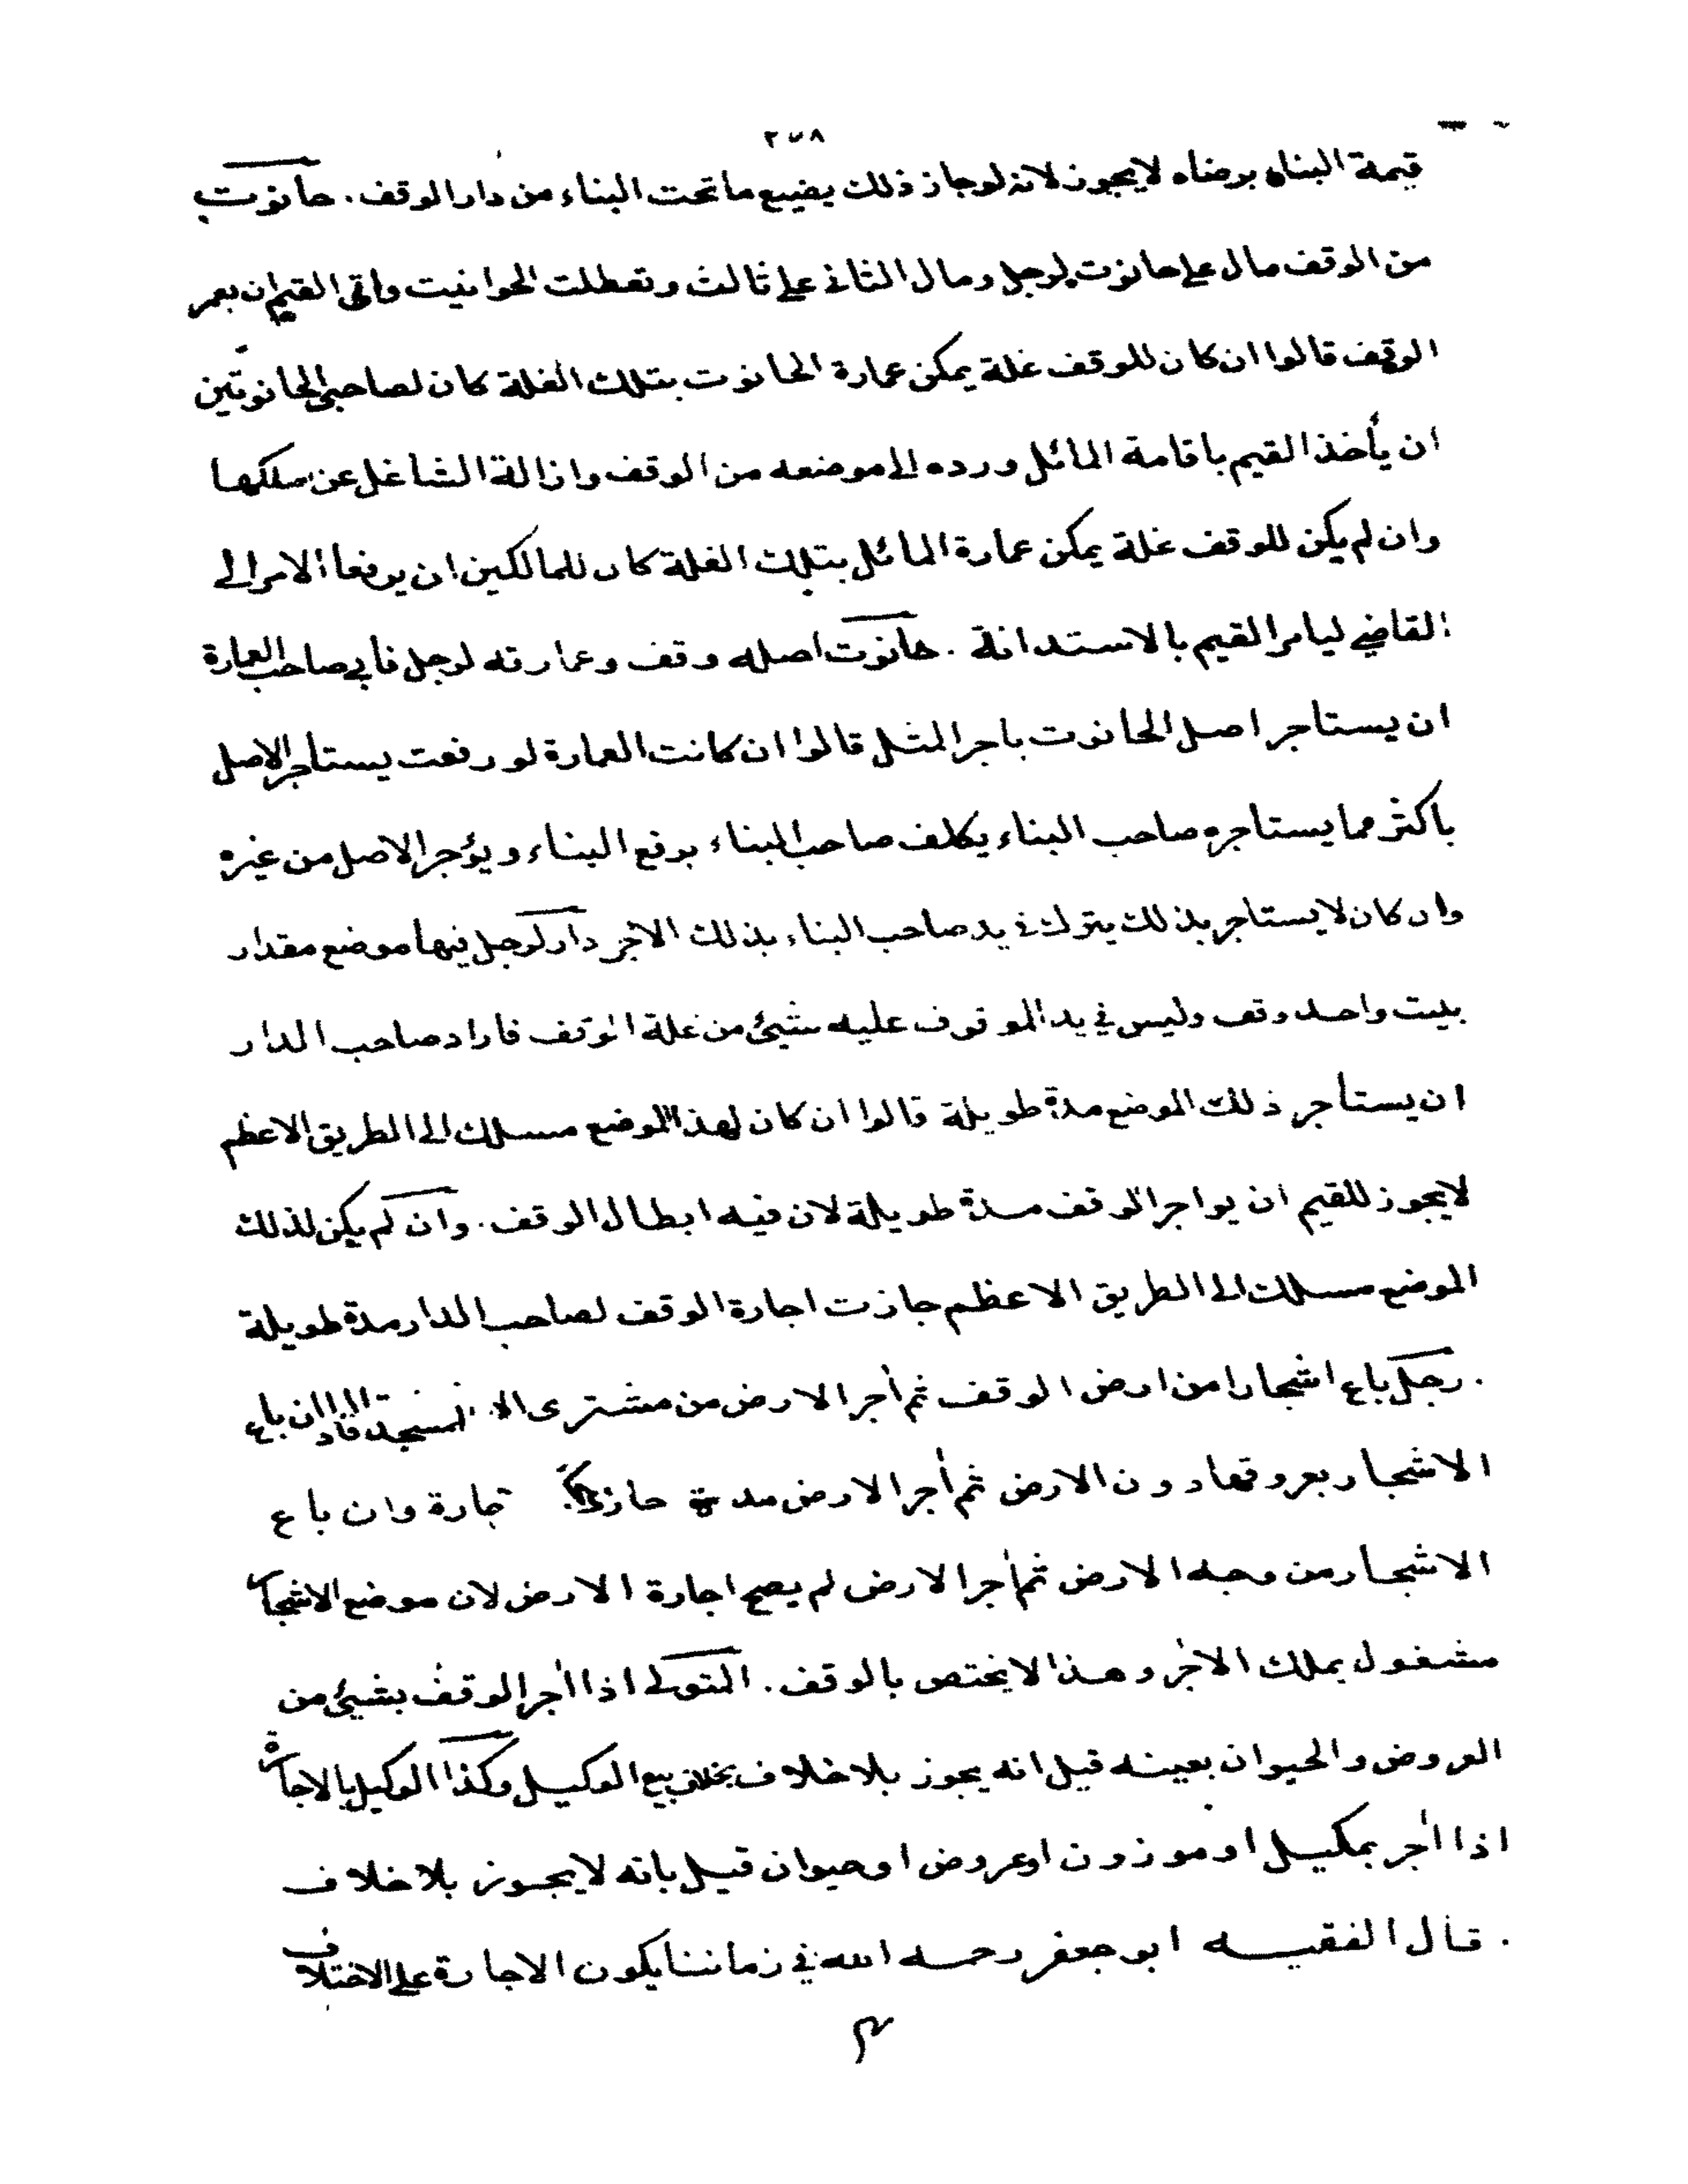 ٢٥٨
قيمة البناء برضاه لا يجوز لانه لو جاز ذلك يضيع ما تحت البناء من دار الوقف . حانوت
من الوقف مال على حانوت لرجل ومال الثاني على ثالث وتعطلت الحوانيت وابى القيم ان يعمر
الوقف قالوا ان كان للوقف غلة يمكن عمارة الحانوت بتلك الغلة كان لصاحبي الحانوتين
ان يأخذ القيم باقامة المائل ورده الى موضعه من الوقف وازالة الشاغل عن ملكهما
وان لم يكن للوقف غلة يمكن عمارة المائل بتلك الغلة كان للمالكين ان يرفعا الامر الى
القاضي ليامر القيم بالاستدانة . حانوت اصله وقف وعمارته لرجل فابى صاحب العمارة
ان يستاجر اصل الحانوت باجر المثل قالوا ان كانت العمارة لو رفعت يستاجر الاصل
باكثر مما يستاجره صاحب البناء يكلف صاحب البناء برفع البناء ويؤجر الاصل من غيره
وان كان لا يستاجر بذلك يترك في يد صاحب البناء بذلك الاجر دار لرجل فيها موضع مقدار
بيت واحد وقف وليس في يد الموقوف عليه شيئ من غلة الوقف فاراد صاحب الدار
ان يستأجر ذلك الموضع مدة طويلة قالوا ان كان لهذا الموضع مسلك الى الطريق الاعظم
لا يجوز للقيم ان يواجر الوقف مدة طويلة لان فيه ابطال الوقف . وان لم يكن لذلك
الموضع مسلك الى الطريق الاعظم جازت اجارة الوقف لصاحب الدار مدة طويلة
. رجل باع اشجارا من ارض الوقف ثم أجر الارض من مشترى ان باع
الاشجار بعروقها دون الارض ثم أجر الارض مدة وان باع
الاشجار من وجه الارض ثم أجر الارض لم يصح اجارة الارض لان موضع الاشجار
مشغول بملك الاجر وهذا لا يختص بالوقف . المتولى اذا أجر الوقف بشيئ من
العروض والحيوان بعينه قيل انه يجوز بلا خلاف بخلاف بيع الوكيل وكذا الوكيل بالاجارة
اذا أجر بمكيل او موزون او عروض او حيوان قيل بانه لا يجوز بلا خلاف
. قال الفقيه ابو جعفر رحمه الله في زماننا يكون الاجارة على الاختلاف